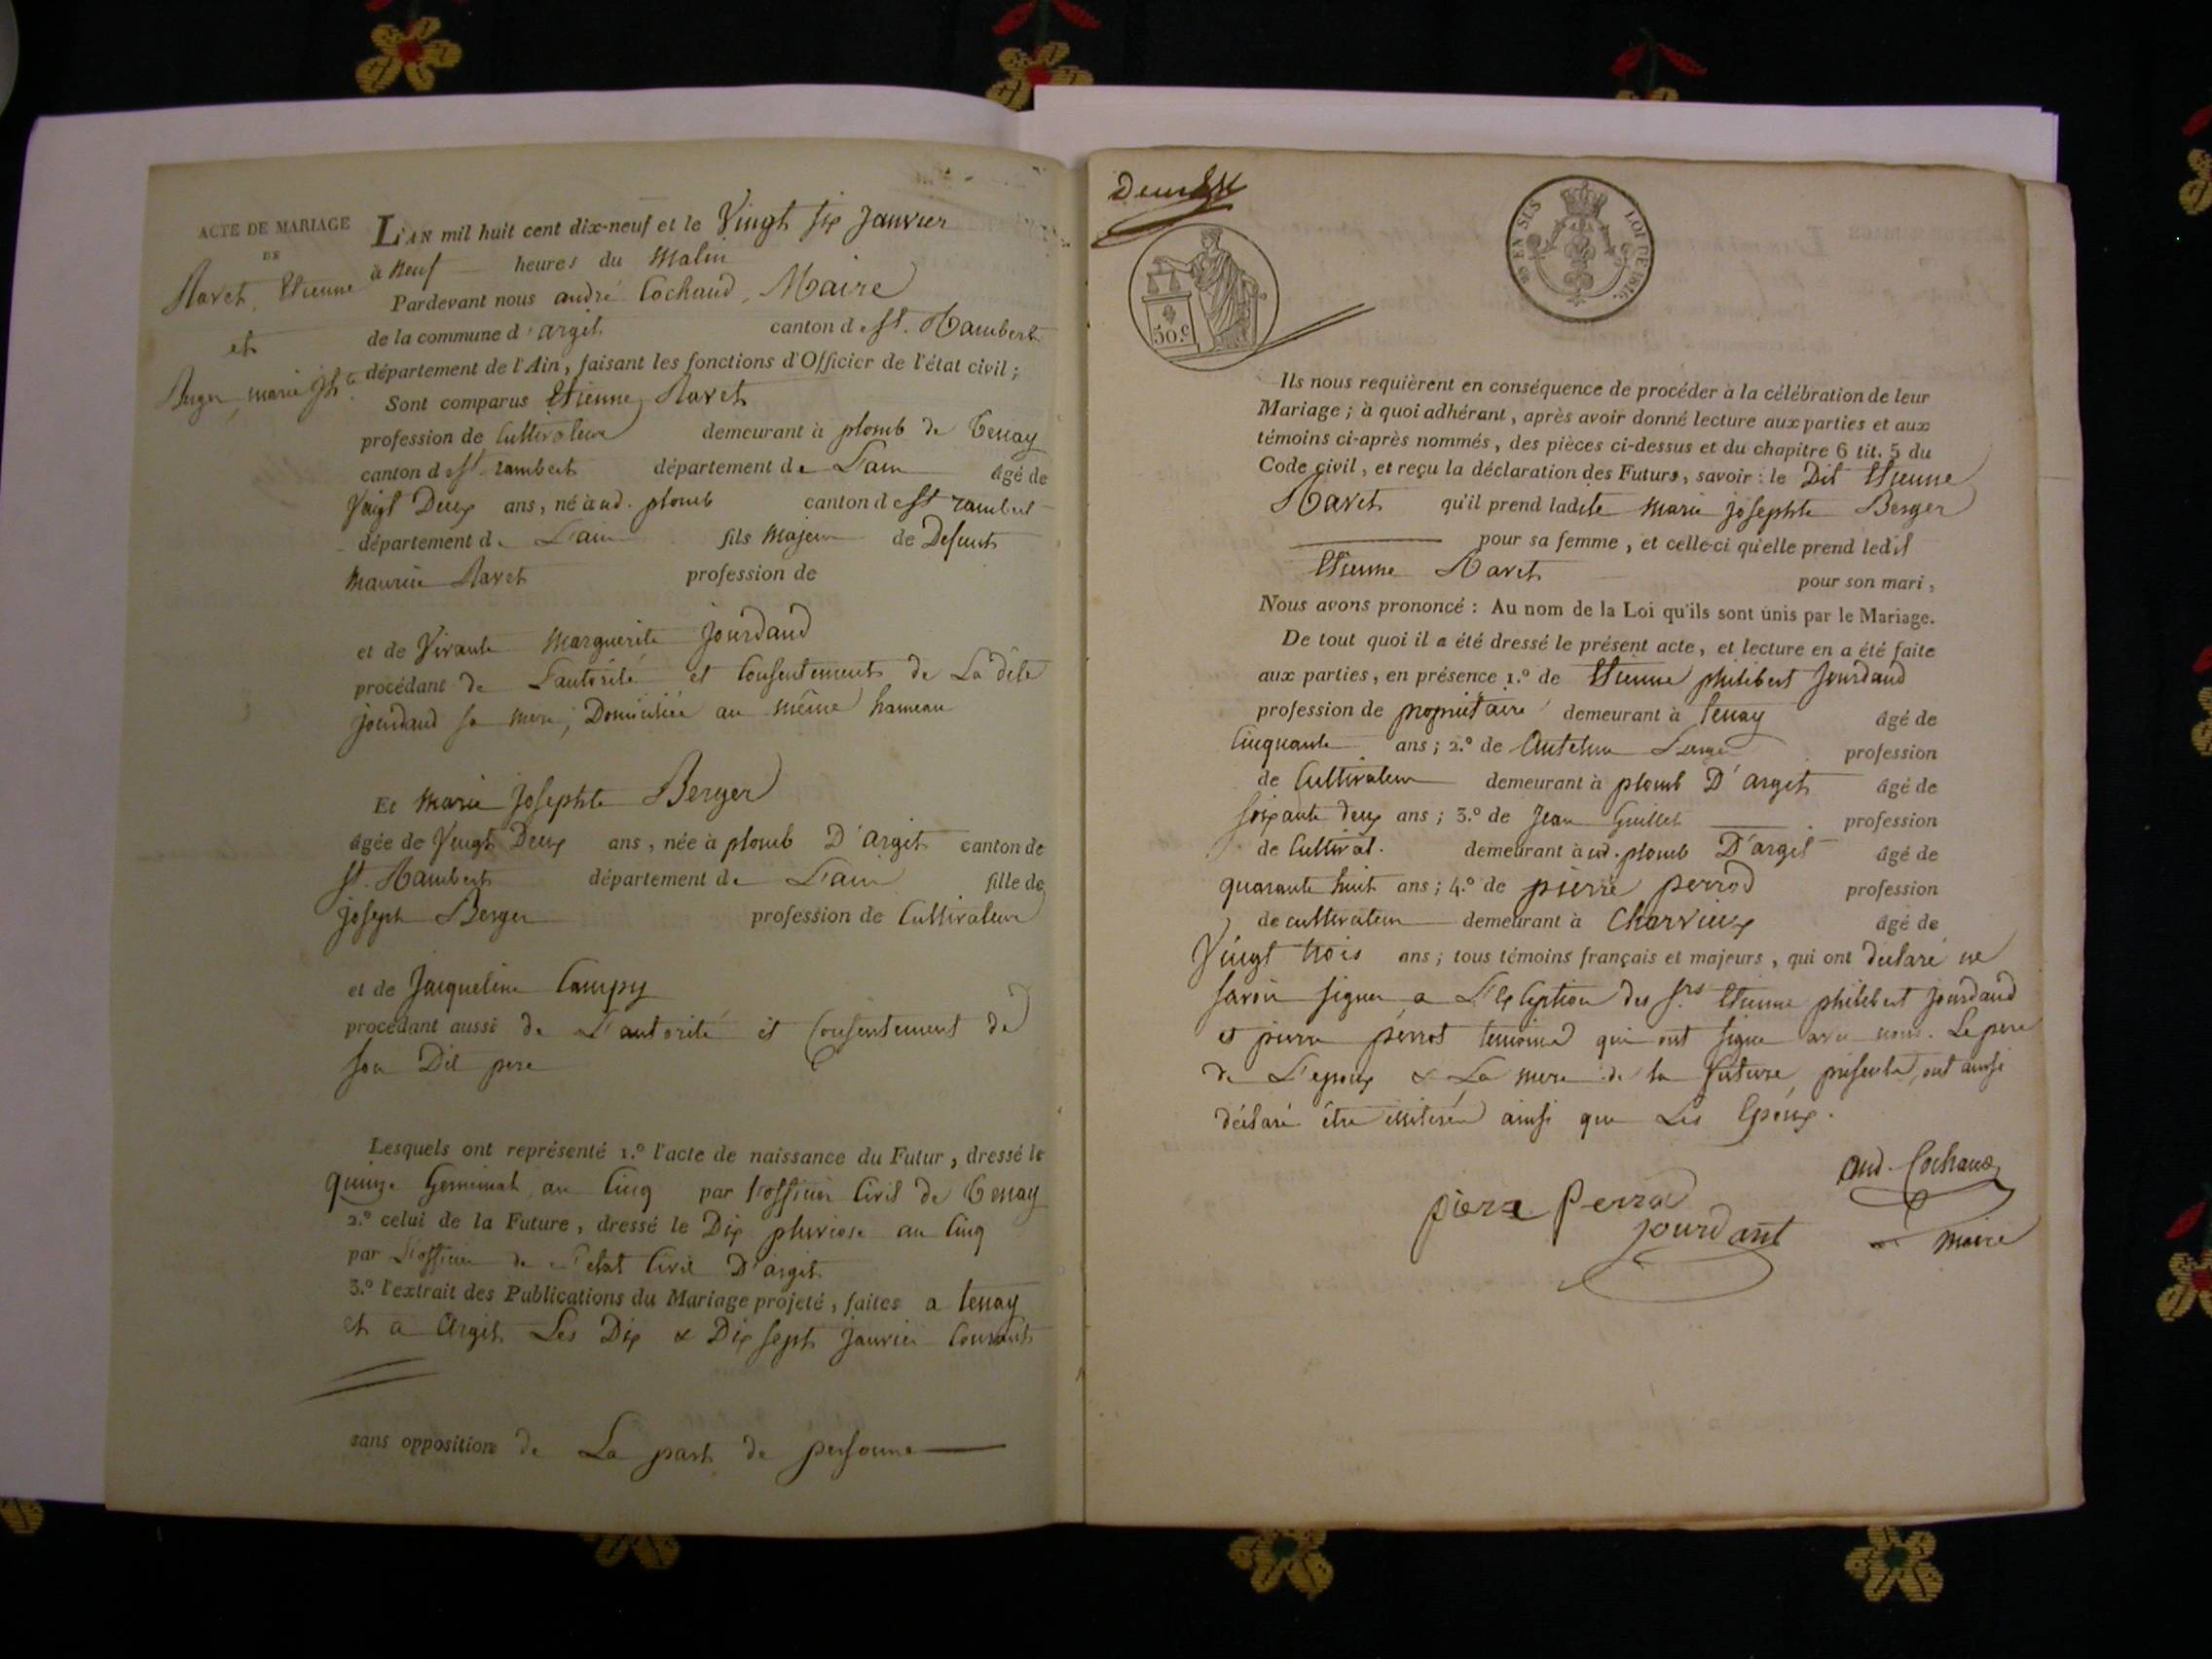 ACTE DE MARIAGE
DE
Ravet, Etienne
et
Berger, marie Jhte
L'AN mil huit cent dix-neuf et le Vingt six Janvier
à neuf heures du Matin
Pardevant nous andré Cochaud, Maire
de la commune d'argit canton de St. Rambert
département de l'Ain, faisant les fonctions d'Officier de l'état civil;
Sont comparus Etienne Ravet
profession de Cultivateur demeurant à plomb de tenay
canton de St rambert département de L'ain âgé de
Vingt Deux ans, né à ud. plomb canton de St rambert
département de L'ain fils Majeur de Defunt
maurice Ravet profession de
et de Vivante Marguerite Jourdand
procédant de L'autorité et Consentement de La dite
jourdand sa mere, Domiciliée au même hameau
Et marie Josephte Berger
âgée de Vingt Deux ans, née à plomb D'argit canton de
St. Rambert département de L'ain fille de
joseph Berger profession de Cultivateur
et de Jacqueline Campy
procédant aussi de L'autorité et Consentement de
son Dit pere
Lesquels ont représenté 1.º l'acte de naissance du Futur, dressé le
quinze Germinal an Cinq par l'officier Civil de tenay
2.º celui de la Future, dressé le Dix pluviose an Cinq
par L'officier de L'etat Civil D'argit
3.º l'extrait des Publications du Mariage projeté, faites a tenay
et a Argit Les Dix & Dix sept Janvier Courant
sans opposition de La part de personne
50 EN SUS LOI DE 1816.
50.c
Ils nous requièrent en conséquence de procéder à la célébration de leur
Mariage; à quoi adhérant, après avoir donné lecture aux parties et aux
témoins ci-après nommés, des pièces ci-dessus et du chapitre 6 tit. 5 du
Code civil, et reçu la déclaration des Futurs, savoir: le Dit Etienne
Ravet qu'il prend ladite marie josephte Berger
pour sa femme, et celle-ci qu'elle prend ledit
Etienne Ravet pour son mari,
Nous avons prononcé: Au nom de la Loi qu'ils sont unis par le Mariage.
De tout quoi il a été dressé le présent acte, et lecture en a été faite
aux parties, en présence 1.º de Etienne philibert Jourdand
profession de propriétaire demeurant à tenay âgé de
Cinquante ans; 2.º de Antelme profession
de Cultivateur demeurant à plomb D'argit âgé de
soixante deux ans; 3.º de Jean Guillet profession
de Cultivat. demeurant à ud. plomb D'argit âgé de
quarante huit ans; 4.º de pierre perrod profession
de cultivateur demeurant à Charvieux âgé de
Vingt trois ans; tous témoins français et majeurs, qui ont déclaré ne
savoir signer a L'Exception des Srs Etienne philibert Jourdand
et pierre perrot temoins qui ont signé avec nous. Le pere
de L'epoux & La mere de la future, présents, ont aussi
déclaré être illiterés ainsi que Les Epoux.
And. Cochaud
piere perrod
jourdant
maire